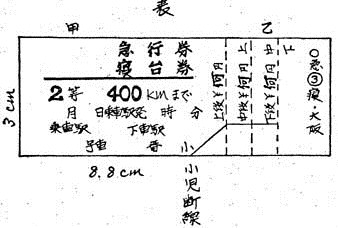 表
甲 乙
急行券
寝台券
2等 400kmまで
月 日乗車駅発 時 分
乗車駅 下車駅
号車 番
小
上段¥何円
上
中段¥何円
中
下段¥何円
下
○急③寝・大阪
3cm
8.8cm
小児断線